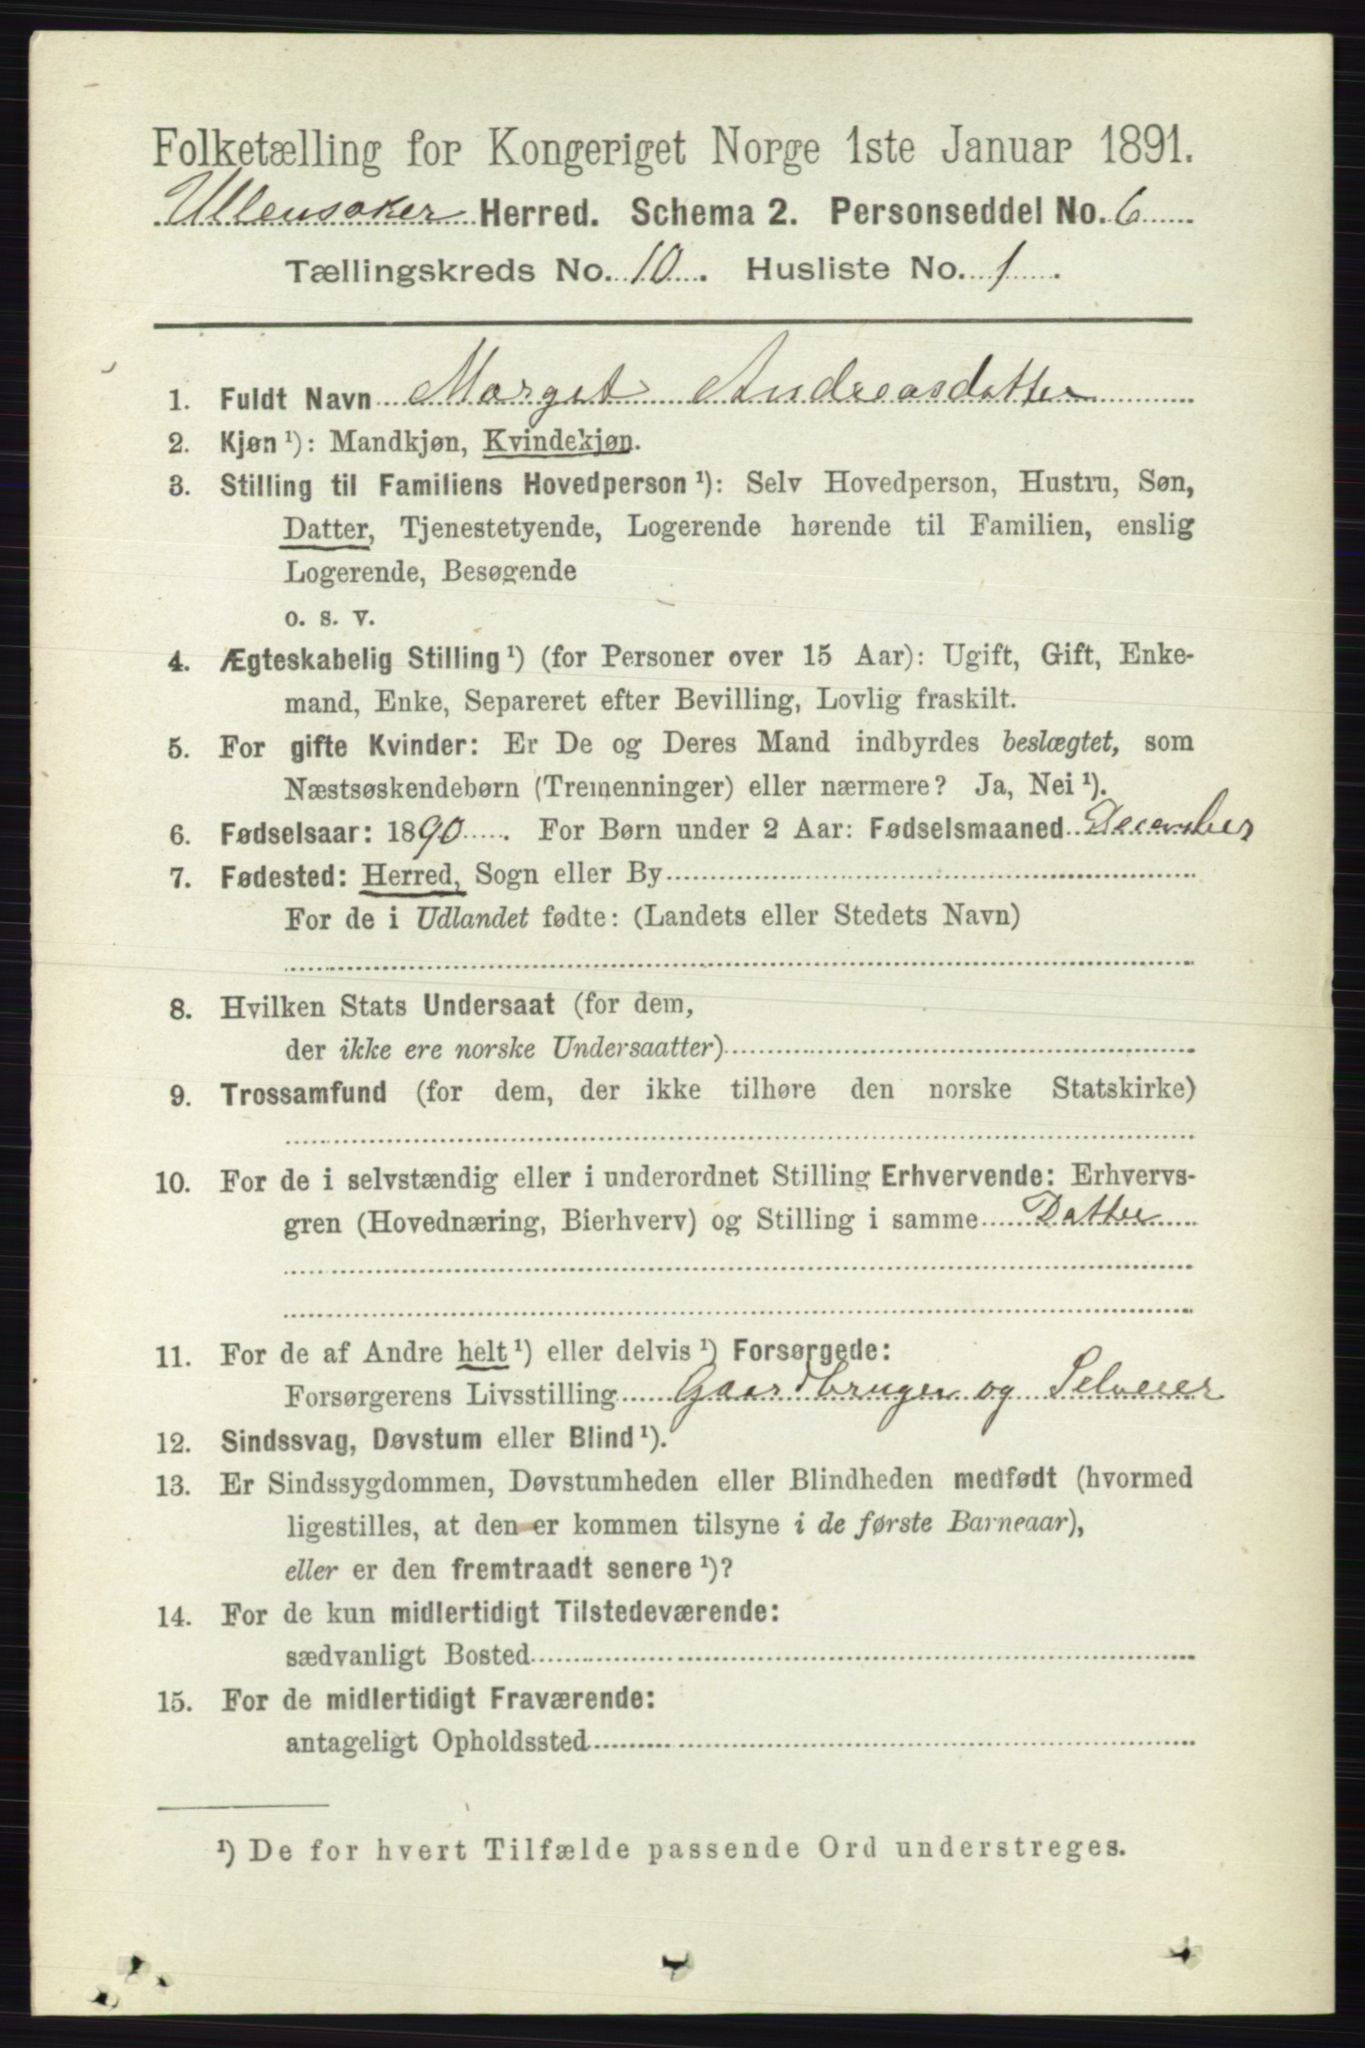 Folketælling for Kongeriget Norge 1ste Januar 1891.
Ullensaker Herred. Schema 2. Personseddel No. 6
Tællingskreds No. 10. Husliste No. 1
1. Fuldt Navn Marget Andreasdatter
2. Kjøn ¹): Mandkjøn, Kvindekjøn.
3. Stilling til Familiens Hovedperson ¹): Selv Hovedperson, Hustru, Søn,
Datter, Tjenestetyende, Logerende hørende til Familien, enslig
Logerende, Besøgende
o. s. v.
4. Ægteskabelig Stilling ¹) (for Personer over 15 Aar): Ugift, Gift, Enke-
mand, Enke, Separeret efter Bevilling, Lovlig fraskilt.
5. For gifte Kvinder: Er De og Deres Mand indbyrdes beslægtet, som
Næstsøskendebørn (Tremenninger) eller nærmere? Ja, Nei ¹).
6. Fødselsaar: 1890. For Børn under 2 Aar: Fødselsmaaned December
7. Fødested: Herred, Sogn eller By
For de i Udlandet fødte: (Landets eller Stedets Navn)
8. Hvilken Stats Undersaat (for dem,
der ikke ere norske Undersaatter)
9. Trossamfund (for dem, der ikke tilhøre den norske Statskirke)
10. For de i selvstændig eller i underordnet Stilling Erhvervende: Erhvervs-
gren (Hovednæring, Bierhverv) og Stilling i samme Datter
11. For de af Andre helt ¹) eller delvis ¹) Forsørgede:
Forsørgerens Livsstilling Gaardbruger og Selveier
12. Sindssvag, Døvstum eller Blind ¹).
13. Er Sindssygdommen, Døvstumheden eller Blindheden medfødt (hvormed
ligestilles, at den er kommen tilsyne i de første Barneaar),
eller er den fremtraadt senere ¹)?
14. For de kun midlertidigt Tilstedeværende:
sædvanligt Bosted
15. For de midlertidigt Fraværende:
antageligt Opholdssted
¹) De for hvert Tilfælde passende Ord understreges.